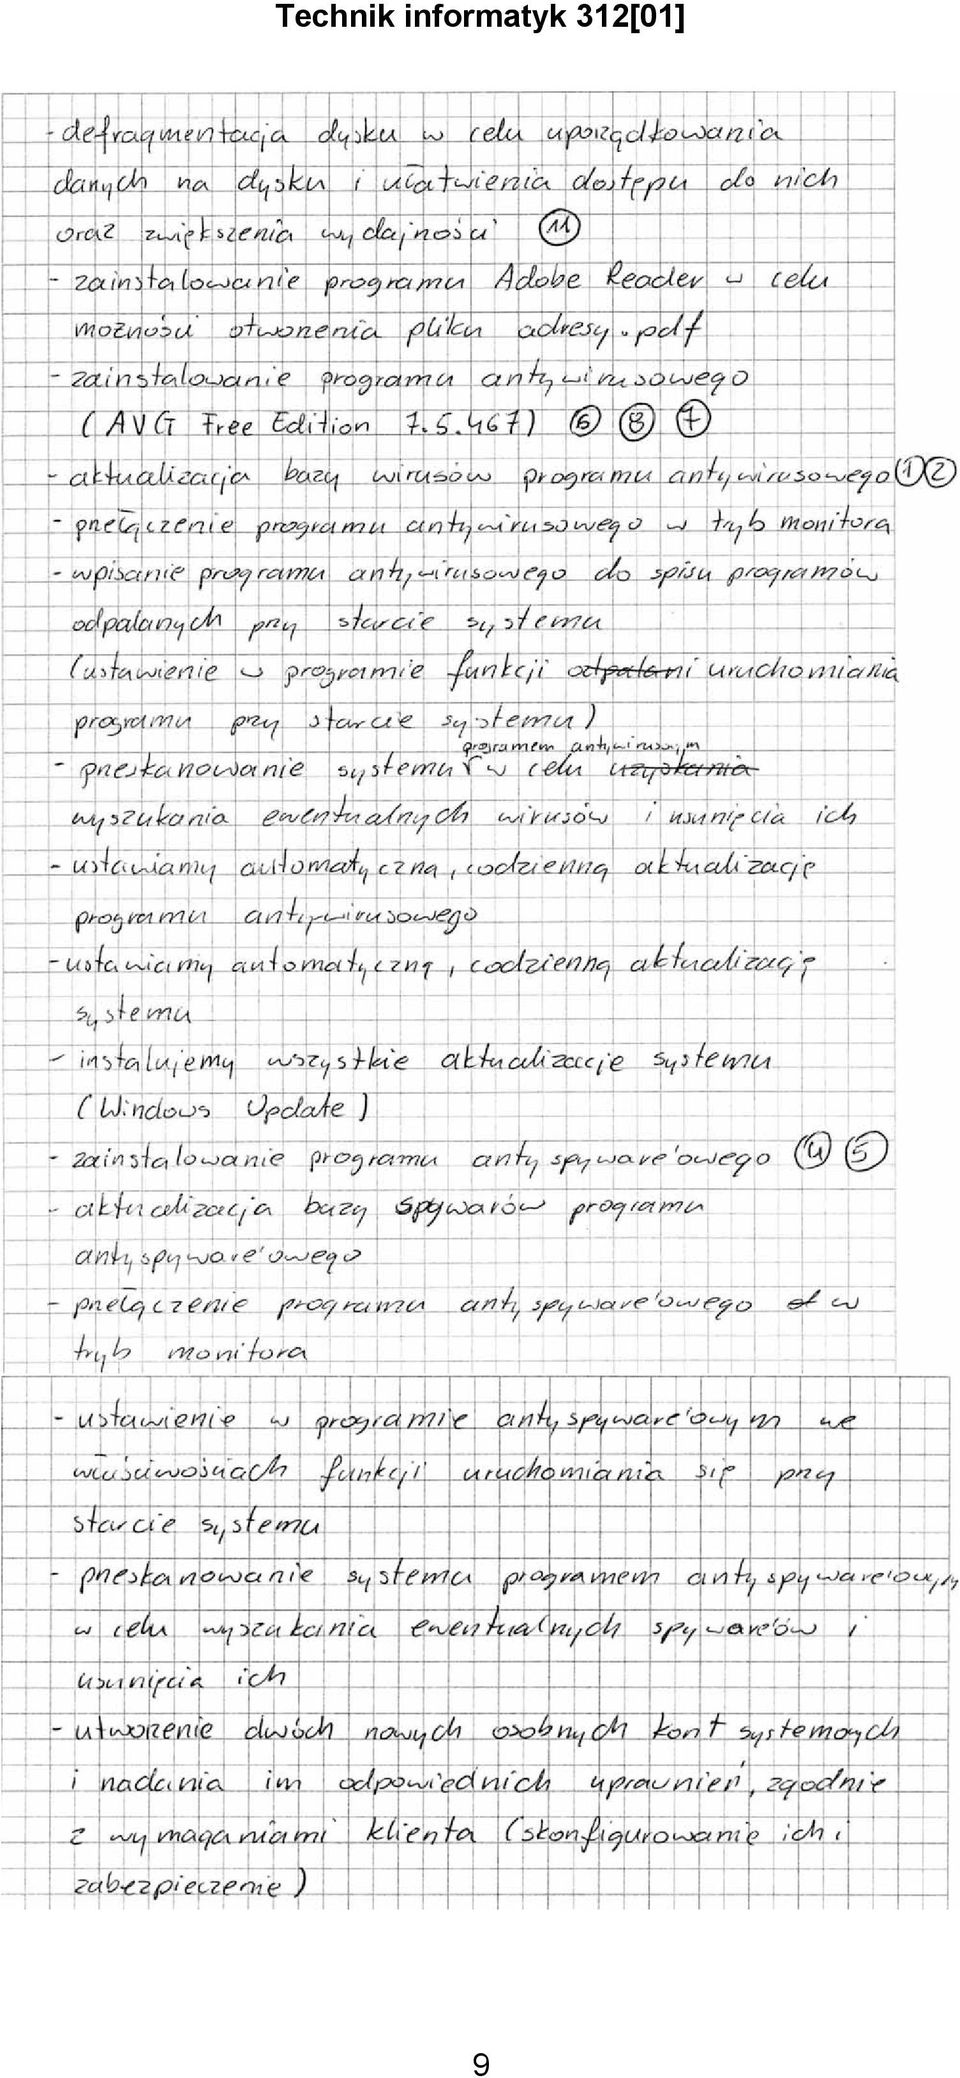 Technik informatyk 312[01]
- defragmentacja dysku w celu uporządkowania
danych na dysku i ułatwienia dostępu do nich
oraz zwiększenia wydajności (11)
- zainstalowanie programu Adobe Reader w celu
możności otworzenia pliku adresy.pdf
- zainstalowanie programu antywirusowego
(AVG Free Edition 7.5.467) (6) (8) (7)
- aktualizacja bazy wirusów programu antywirusowego (1) (2)
- przełączenie programu antywirusowego w tryb monitora
- wpisanie programu antywirusowego do spisu programów
odpalanych przy starcie systemu
(ustawienie w programie funkcji odpalani uruchomiania
programu przy starcie systemu)
programem antywirusowym
- przeskanowanie systemu w celu uzyskania
wyszukania ewentualnych wirusów i usunięcia ich
- ustawiamy automatyczną, codzienną aktualizację
programu antywirusowego
- ustawiamy automatyczną, codzienną aktualizację
systemu
- instalujemy wszystkie aktualizacje systemu
(Windows Update)
- zainstalowanie programu antyspyware'owego (4) (5)
- aktualizacja bazy spywarów programu
antyspyware'owego
- przełączenie programu antyspyware'owego w
tryb monitora
- ustawienie w programie antyspyware'owym we
właściwościach funkcji uruchomiania się przy
starcie systemu
- przeskanowanie systemu programem antyspyware'owym
w celu wyszukania ewentualnych spyware'ów i
usunięcia ich
- utworzenie dwóch nowych osobnych kont systemowych
i nadania im odpowiednich uprawnień, zgodnie
z wymaganiami klienta (skonfigurowanie ich i
zabezpieczenie)
9